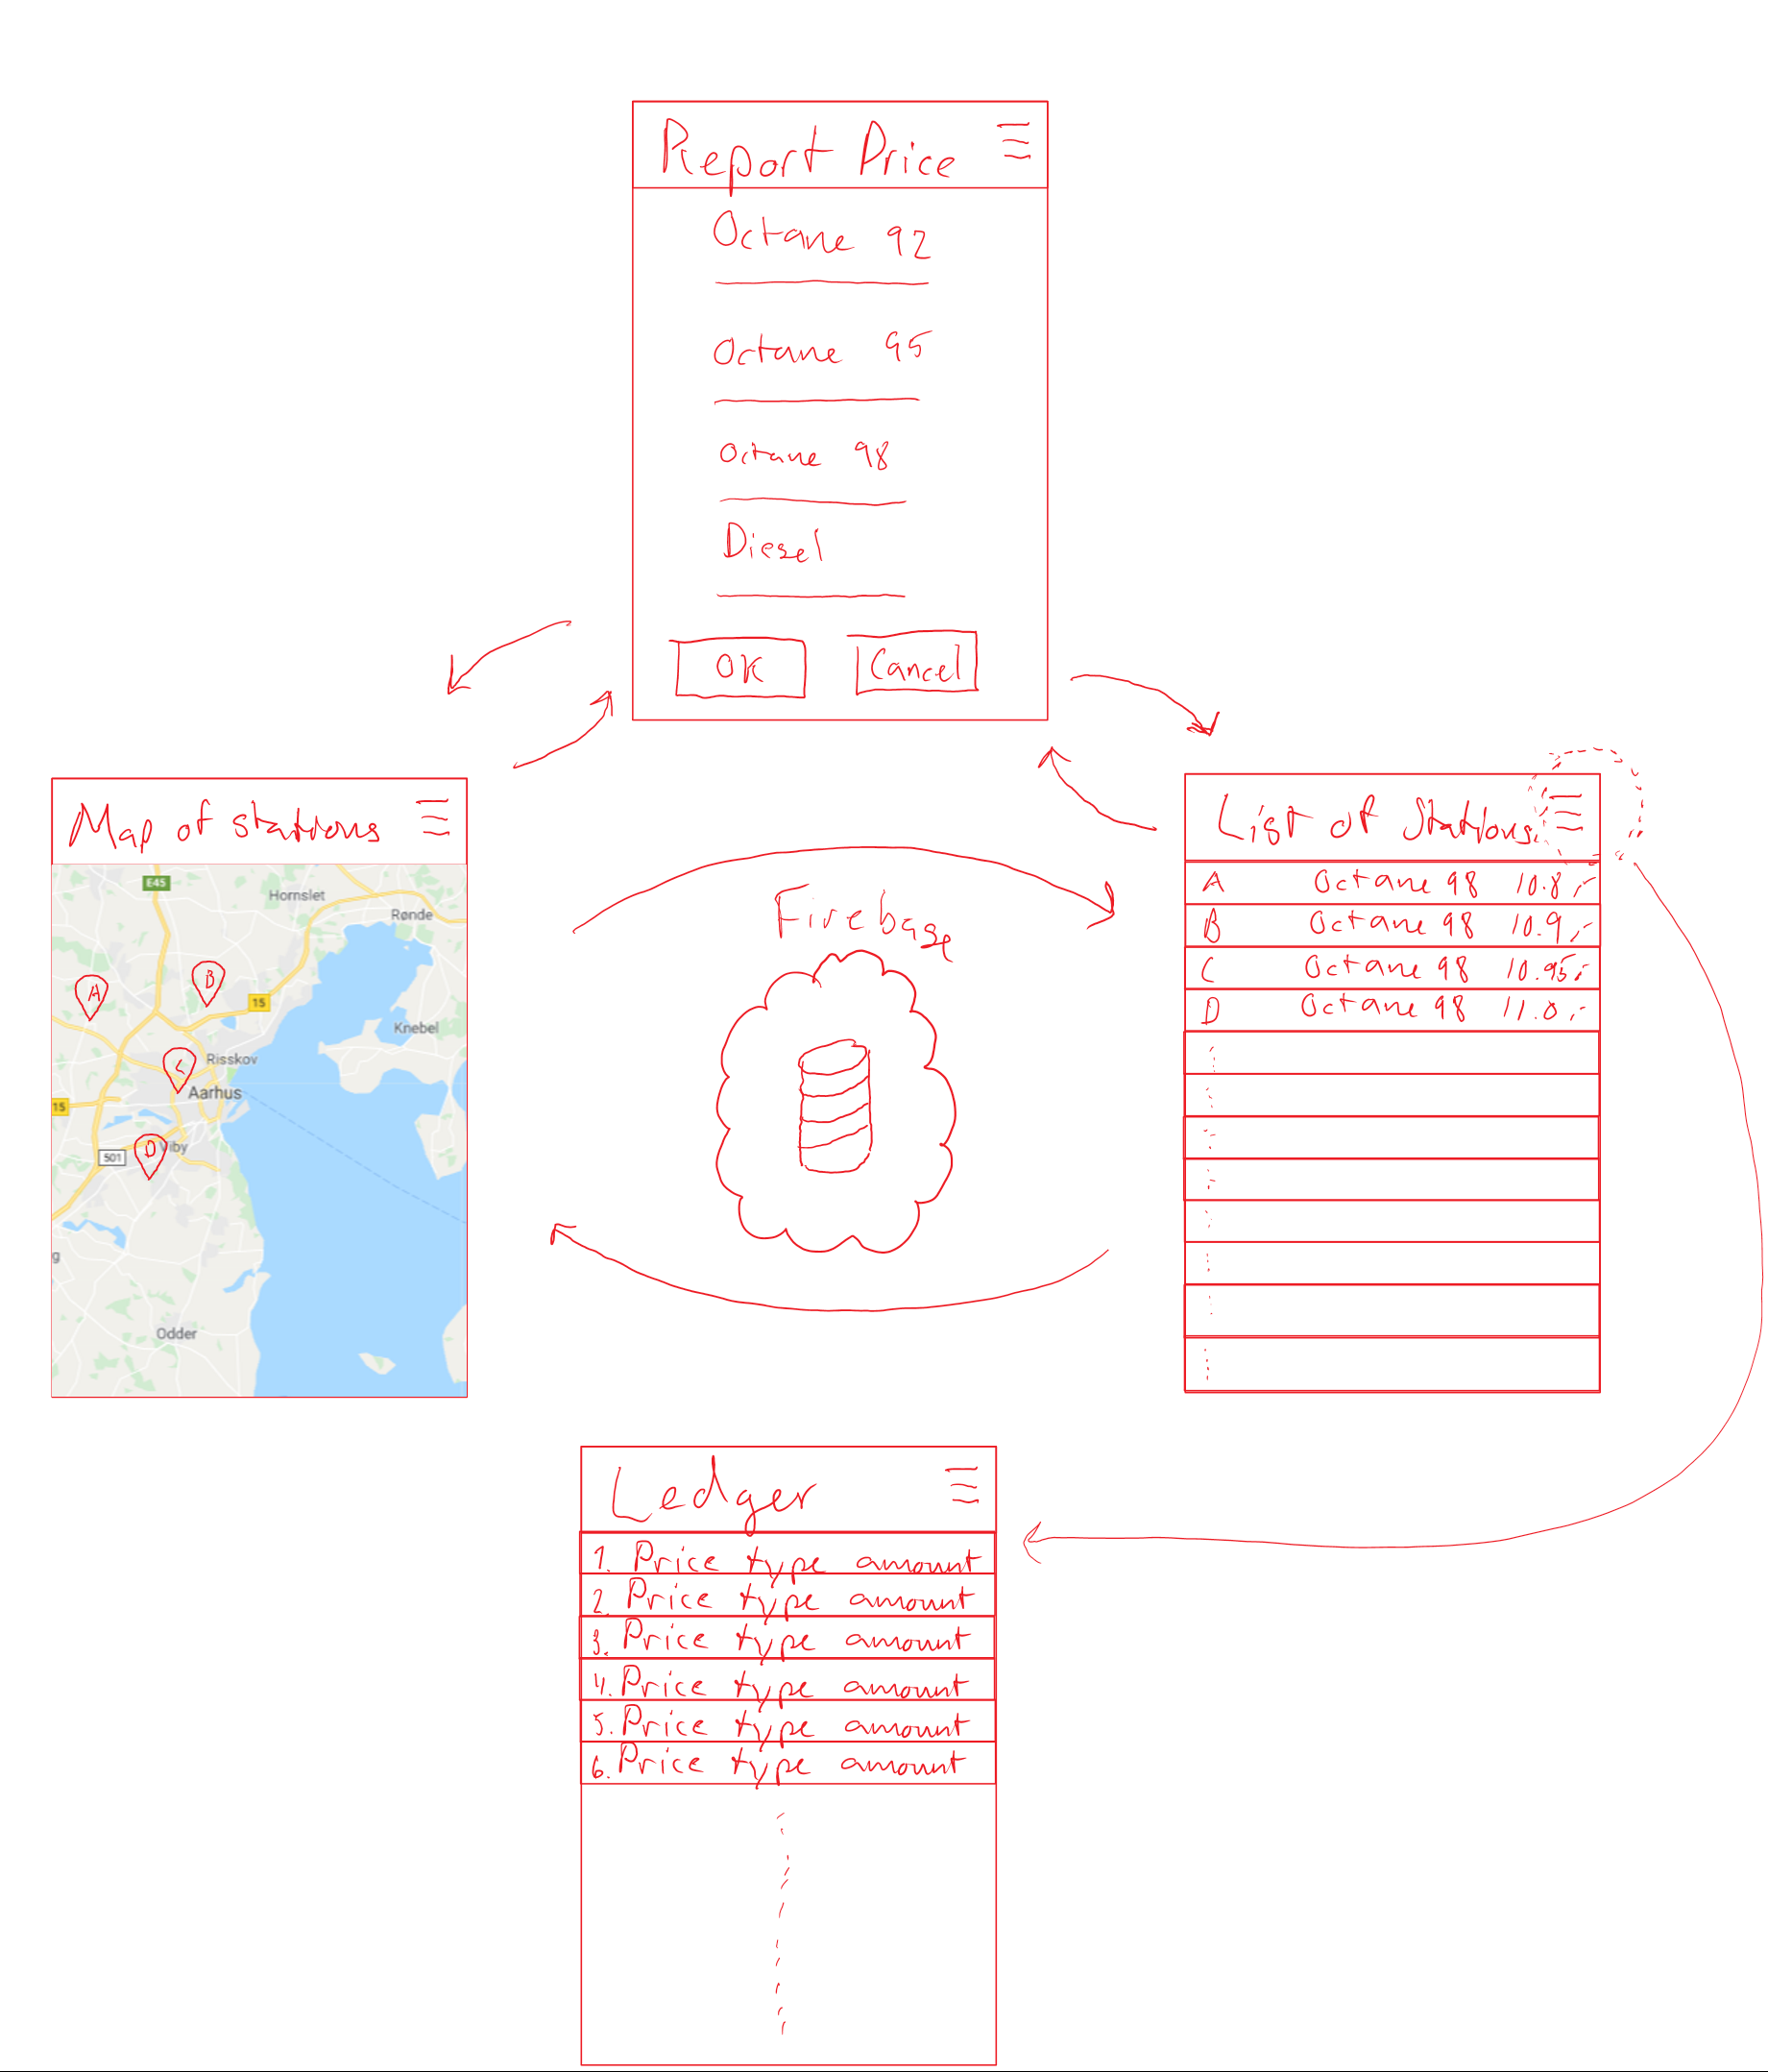 Report Price
Octane 92
Octane 95
Octane 98
Diesel
OK
Cancel
Map of stations
E45
Hornslet
Rønde
A
B
15
Knebel
C
Risskov
Aarhus
15
D
Viby
501
g
Odder
Firebase
List of Stations
A Octane 98 10.8,-
B Octane 98 10.9,-
C Octane 98 10.95,-
D Octane 98 11.0,-
Ledger
1. Price type amount
2. Price type amount
3. Price type amount
4. Price type amount
5. Price type amount
6. Price type amount